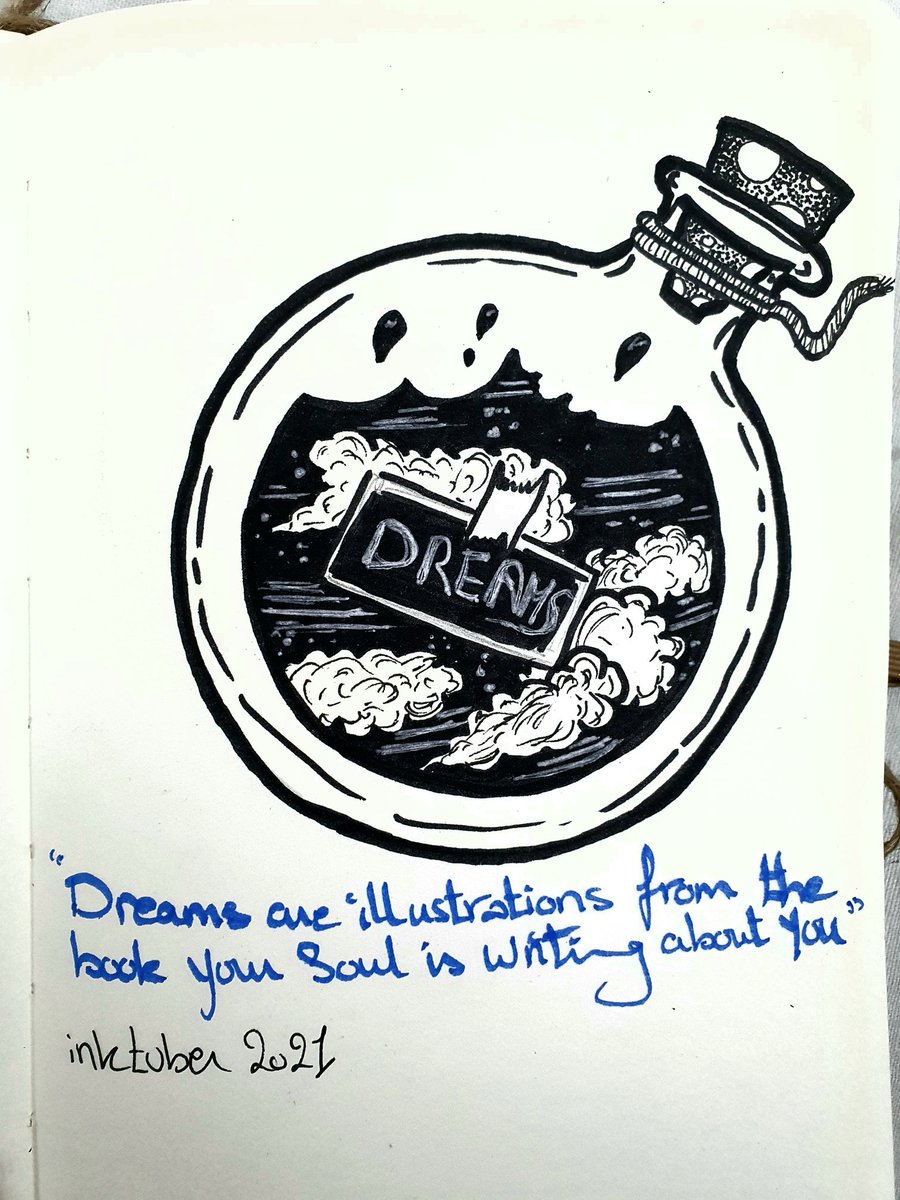 DREAMS
"Dreams are illustrations from the
book your Soul is writing about you"
inktuber 2021